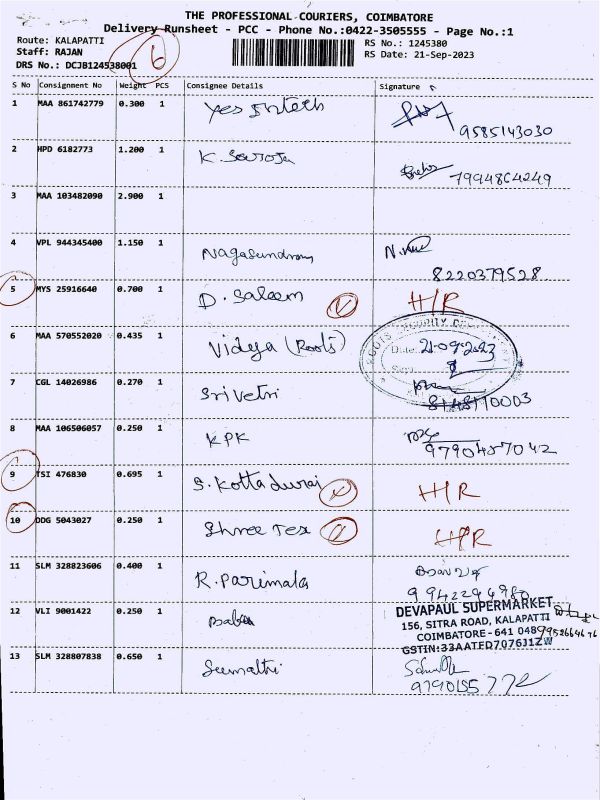 THE PROFESSIONAL COURIERS, COIMBATORE
Delivery Runsheet - PCC - Phone No.:0422-3505555 - Page No.:1
Route: KALAPATTI RS No.: 1245380
Staff: RAJAN RS Date: 21-Sep-2023
DRS No.: DCJB124538001
6
S No Consignment No Weight PCS Consignee Details Signature
1 MAA 861742779 0.300 1 Yes Intech
9585143030
2 HPD 6182773 1.200 1 K. Saroja
7994864249
3 MAA 103482090 2.900 1
4 VPL 944345400 1.150 1 Nagasundram
8220379528
5 MYS 25916640 0.700 1 D. Saleem H/R
6 MAA 570552020 0.435 1 Vidya (Roots)
ROOTS SECURITY
Date: 21-09-2023
7 CGL 14026986 0.270 1 Srivetri
8148110003
8 MAA 106506057 0.250 1 KPK
9790487042
9 TSI 476830 0.695 1 S. Kottadurai H/R
10 DDG 5043027 0.250 1 Shree Tex H/R
11 SLM 328823606 0.400 1 R. Parimala
9942294980
12 VLI 9001422 0.250 1 Babu
DEVAPAUL SUPERMARKET
156, SITRA ROAD, KALAPATTI
COIMBATORE - 641 048
9952664676
GSTIN:33AATFD7076J1ZW
13 SLM 328807838 0.650 1
9790155772